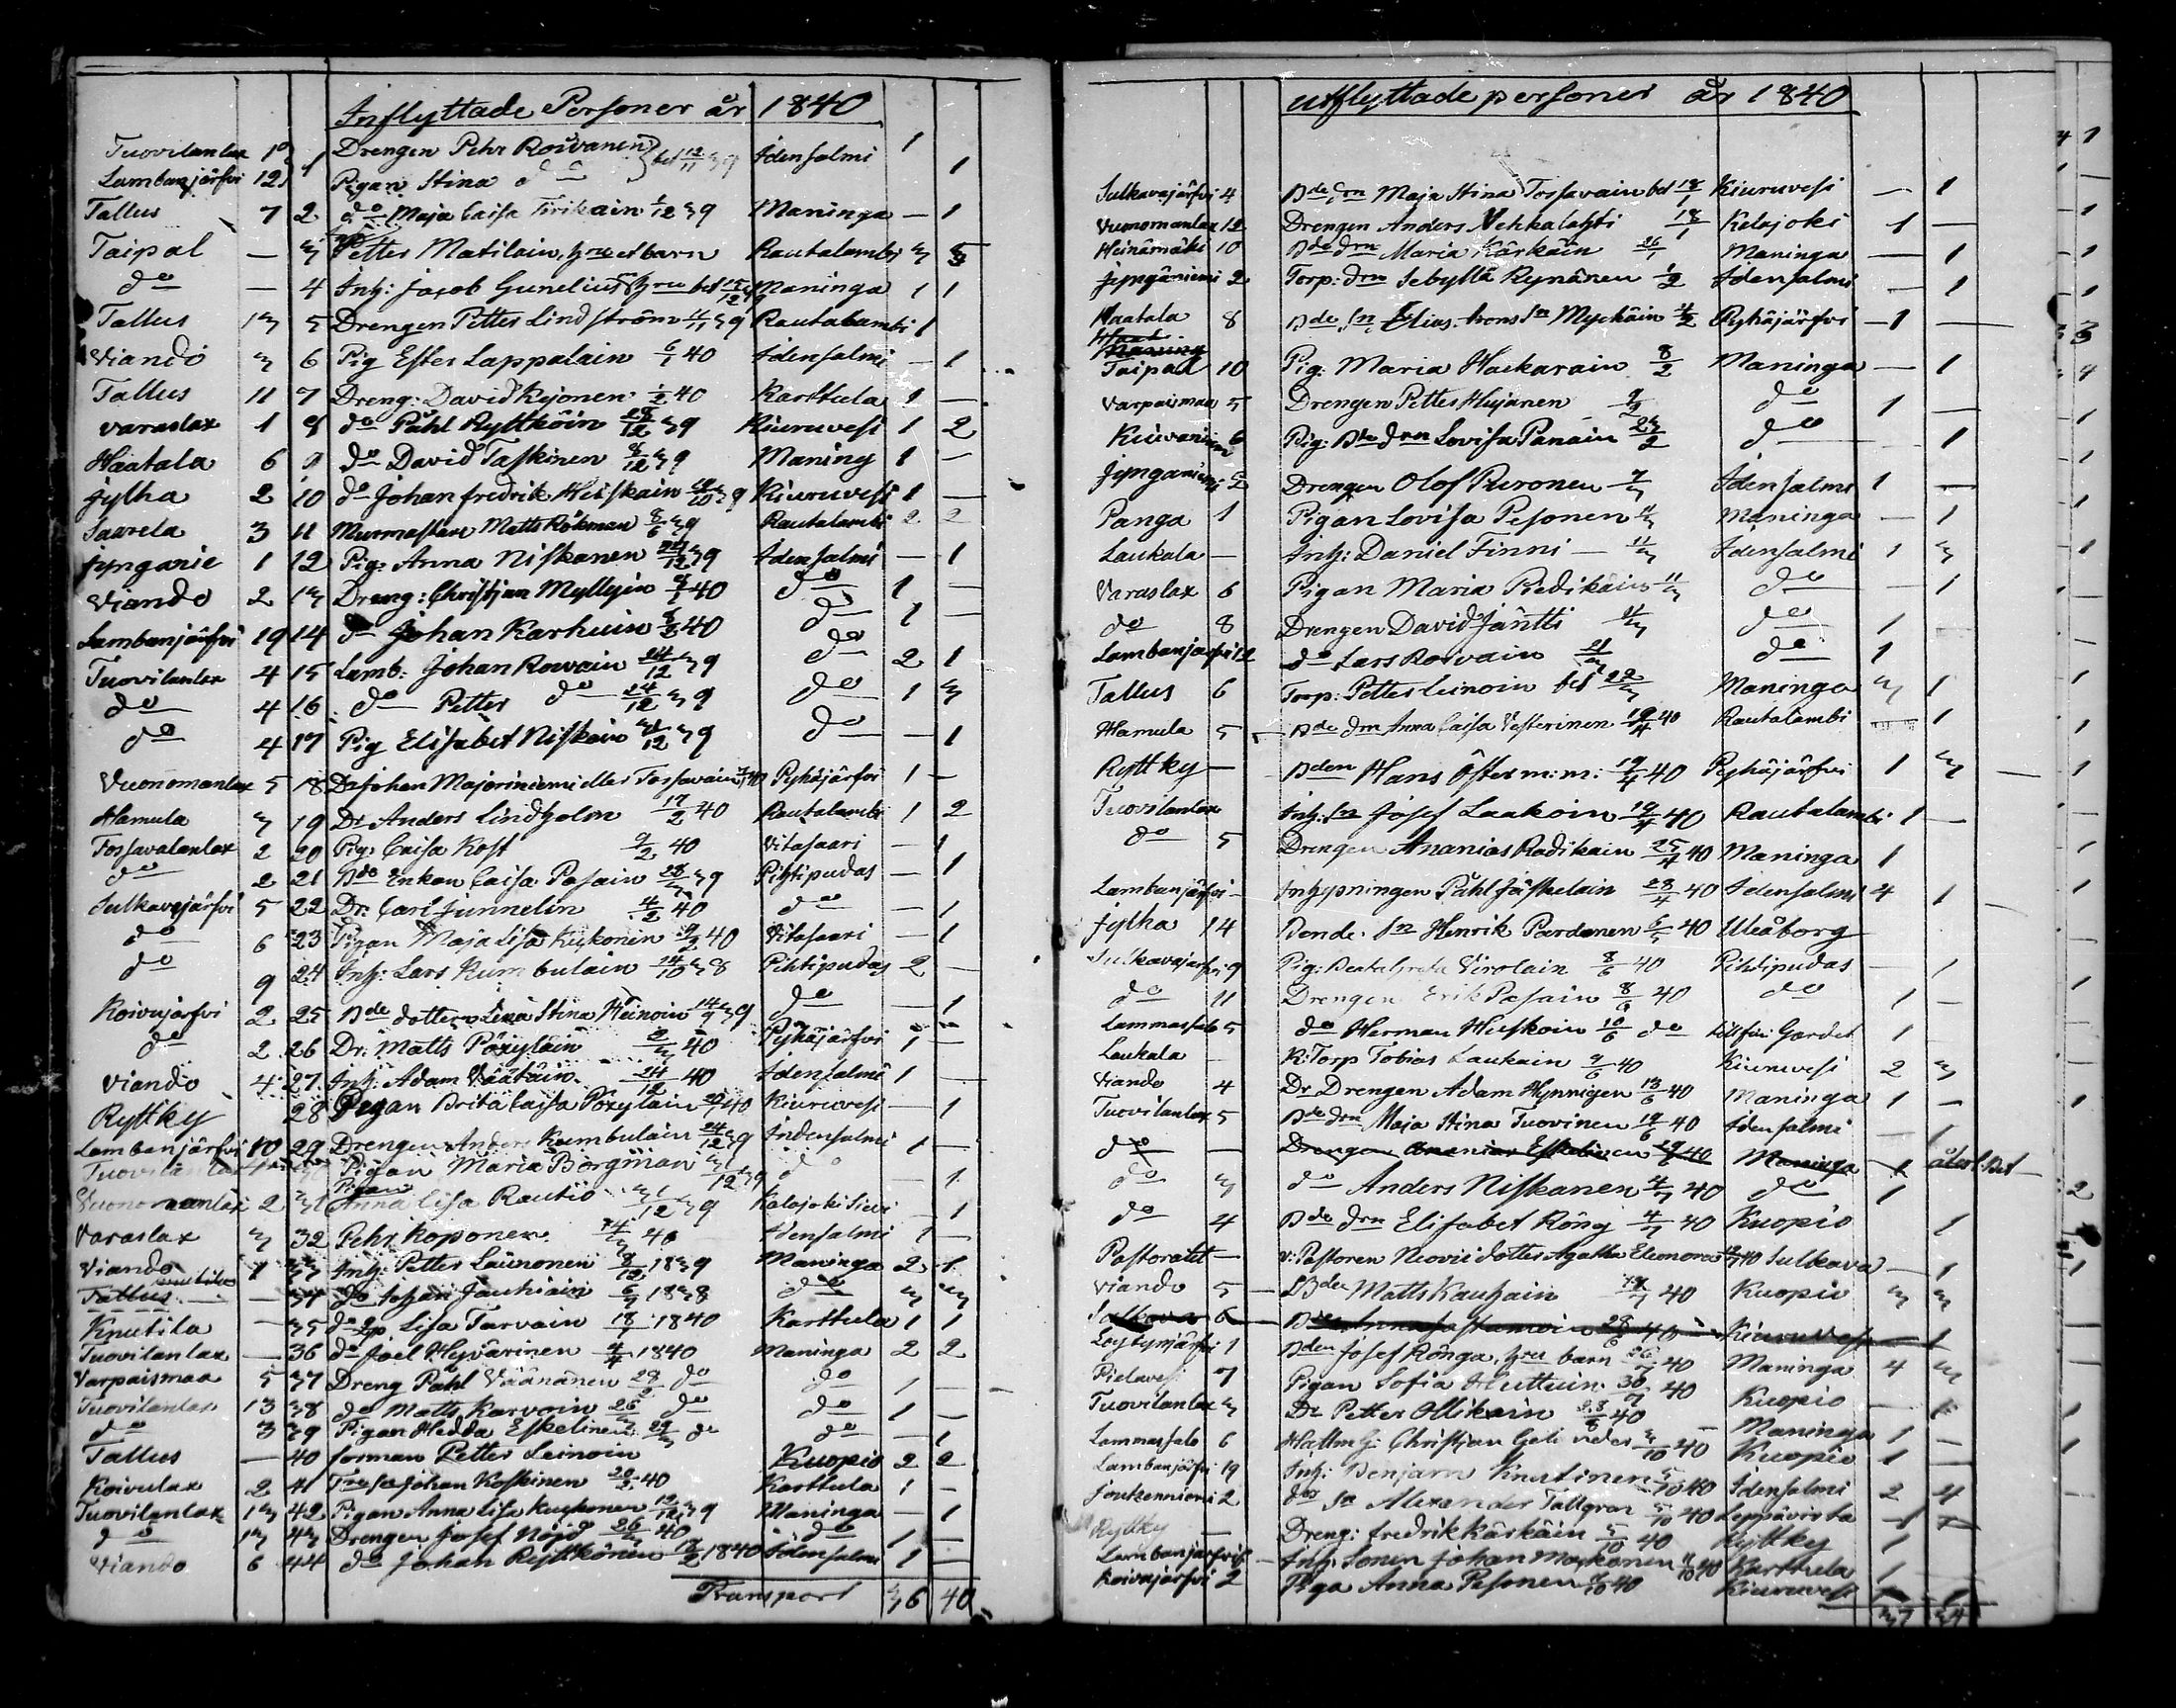 Inflyttade Personer år 1840
Tuovilanlax 10 1 Drengen Pehr Roivanen bet 12/11 39 Idensalmi 1
Lambanjärfvi 12 Pigan Stina do 1
Tallus 7 2 do Maja Caisa Tirikain 1/12 39 Maninga — 1
Taipal — 3 Petter Matilain, hru et barn Rautalambi 3 3
do — 4 Inh: Jacob Gunelius hru bet Maninga 1 1
Tallus 13 5 Drengen Petter Lindström 4/11 39 Rautalambi 1
Viando 3 6 Pig Ester Lappalain 6/1 40 Idensalmi — 1
Tallus 11 7 Dreng: David Kejonen 1/2 40 Karttula 1 —
Varaslax 1 8 do Påhl Ryttköin 28/12 39 Kiuruvesi 1 2
Haatala 6 9 do David Taskinen 8/12 39 Maning 1 —
Jylha 2 10 do Johan Fredrik Heiskain 39 Kiuruvesi 1 —
Saarela 3 11 Murmästare Matts Rökman 8/6 39 Rautalambi 2 2
Jynganie 1 12 Pig: Anna Niskanen 39 Idensalmi — 1
Viando 2 13 Dreng: Christjan Myllyin 40 do 1 —
Lambanjärfvi 19 14 do Johan Karhuin 40 do 1 —
Tuovilanlax 4 15 Lamb: Johan Rowain 24/12 39 do 2 1
do 4 16 do Petter do 24/12 39 do 1 3
do 4 17 Pig Elisabet Niskain 31/12 39 do — 1
Vuonomanlax 5 18 Dr Johan Majoriniemi eller Tossavain 40 Pyhäjärfvi 1 —
Hamula 3 19 Dr Anders Lindholm 17/2 40 Rautalambi 1 2
Tossavalanlax 2 20 Pig: Caisa Kost 9/2 40 Vitasaari — 1
do 2 21 Bde Enkan Caisa Pasain 28/3 39 Pihtipudas — 1
Sulkavajärfvi 5 22 Dr: Carl Junnelin 4/2 40 do — 1
do 6 23 Pigan Maja Lisa Kuykonen 9/2 40 Vitasaari — 1
do 9 24 Inh: Lars Kumbulain 14/10 38 Pihtipudas 2 —
Koivujärfvi 2 25 Bde dottern Lena Stina Heinoin 14/9 39 do — 1
do 2 26 Dr: Matts Pöxyläin 2/3 40 Pyhäjärfvi 1 —
Viando 4 27 Inh: Adam Väätäin 24/12 40 Idensalmi 1 —
Ryttky 28 Pigan Brita Caisa Pöxyläin 40 Kiuruvesi — 1
Lambanjärfvi 10 29 Drengen Anders Kumbulain 24/12 39 Indensalmi 1 —
Tuovilanlax 30 Pigan Maria Borgman 3/12 39 do — 1
Vuonomanlax 2 31 Pigan Anna Lisa Rautio 31/12 39 Kalajoki — 1
Varaslax 3 32 Pehr Koponen 40 Idensalmi 1 —
Viando 1 33 Inh: Petter Launonen 8/12 1839 Maninga 2 1
Tallus — 34 do Johan Jauhiain 6/7 1838 do 3 3
Knutila — 35 do Lisa Tarvain 18/1 1840 Karttula 1 1
Tuovilanlax — 36 do Joel Hyvärinen 4/4 1840 Maninga 2 2
Varpaismaa 5 37 Dreng Påhl Väänänen 28/2 do do 1 —
Tuovilanlax 13 38 do Matts Karvoin 26/3 do do 1 —
do 3 39 Pigan Hedda Eskelinen 29/3 do do — 1
Tallus — 40 forman Petter Leinoin Kuopio 2 2
Koivulax 2 41 Johan Koskinen 20/2 40 Karttula 1 —
Tuovilanlax 13 42 Pigan Anna Lisa Kuykonen 12/12 39 Maninga — 1
do 13 43 Drengen Josef Nöjd 26/3 40 do 1 —
Viando 6 44 do Johan Ryttkönen 1840 Idensalmi 1 —
Transport 36 40
utflyttade personer år 1840
Sulkavajärfvi 4 Bde drn Maja Stina Tossavain bet 18/1 Kiuruvesi — 1
Vuonomanlax 12 Drengen Anders Vehkalahti 18/1 Kelajoki 1 —
Heinämäki 10 Bde drn Maria Kärkäin 26/1 Maninga — 1
Jynganiemi 2 Torp: drn Sebyllä Rynänen 1/2 Idensalmi — 1
Haatala 8 Bde sn Elias Mychäin 4/2 Pyhäjärfvi 1 —
Taipal 10 Pig: Maria Hackarain 8/2 Maninga — 1
Varpaismaa 5 Drengen Petter Hujanen do 1 —
Kiuvaniem 6 Pig: Bde drn Lovisa Panain 23/2 do — 1
Jynganiemi 2 Drengen Olof Puronen 7/3 Idensalmi 1 —
Panga 1 Pigan Lovisa Pesonen Maninga — 1
Laukala — Inh: Daniel Finni 11/3 Idensalmi 1 3
Varaslax 6 Pigan Maria Redikäin 11/3 do — 1
do 8 Drengen David Jäntti do 1
Lambanjärfvi 12 do Lars Roivain 21/3 do 1
Tallus 6 Torp: Petter Leinoin bet 22/3 Maninga 3 1
Hamula 5 Bde drn Anna Caisa Vesterinen 19/4 40 Rautalambi — 1
Ryttky — Bden Hans Öster m: m: 19/4 40 Pyhäjärfvi 1 3
Tuovilanlax Inh: sn Josef Laakoin 19/4 40 Rautalambi 1 —
do 5 Drengen Ananias Radikain 25/4 40 Maninga 1
Lambanjärfvi — Inhysningen Påhl Jäskelain 28/4 40 Idensalmi 4 1
Jylha 14 Bonde sn Henrik Pardanen 40 Uleåborg
Sulkavajärfvi 9 Pig: Beata Greta Virolain 8/6 40 Pihtipudas — 1
do 11 Drengen Erik Pasain 8/6 40 do 1 —
Lammassalo 5 do Herman Huskoin 10/6 do till fin: Gardet 1
Laukala — K: Torp Tobias Laukain 9/6 40 Kiuruvesi 2 3
Viando 4 Dr Drengen Adam Hynnigen 13/6 40 Maninga 1 —
Tuovilanlax 5 Bde drn Maja Stina Tuovinen 19/6 40 Idensalmi — 1
do — Drengen Ananias Eskelinen 40 Maninga
do 3 do Anders Niskanen 4/7 40 do 1
do 4 Bde drn Elisabet Röng 4/7 40 Kuopio 1
Pastoratet — v: Pastoren Neovii dotter Agatha Eleonora 40 Sulkava — 1
Viando 5 Bden Matts Kauhain 18/7 40 Kuopio 3 3
6 28/6 40 Kiuruvesi — 1
Löytynjärfvi 1 Bden Josef Rönga, hru barn 26/7 40 Maninga 4 3
Pielaves 7 Pigan Sofia Huttuin 30/7 40 Kuopio — 1
Tuovilanlax 3 Dr Petter Ollikain 28/8 40 Maninga 1 —
Lammassalo 6 Christjan 3/10 40 Kuopio 1
Lambanjärfvi 19 Inh: Benjam Knutinen 5/10 40 Idensalmi 2 4
Joukenniemi 2 sn Alexander Tallgran 5/10 40 Leppävirta 1
Ryttky — Dreng: Fredrik Kärkäin 5/10 40 Ryttky 1
Lambanjärfvi — Inh: Sonen Johan Moykonen 40 Karttula 1
Koivujärfvi 2 Piga Anna Pesonen 40 Kiuruvesi 1
37 34